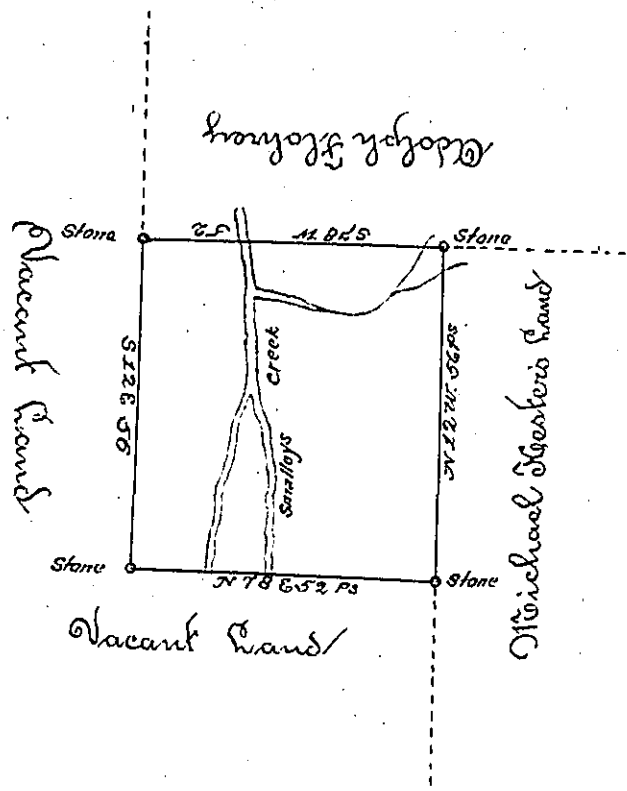 Adolph Flohrey
Stone
52
S 78 W
Stone
Vacant Land
S 12 E 56
Creek
Smalloys
N 12 W. 56 ps
Michael Kester's Land
Stone
N 78 E 52 Ps
Stone
Vacant Land